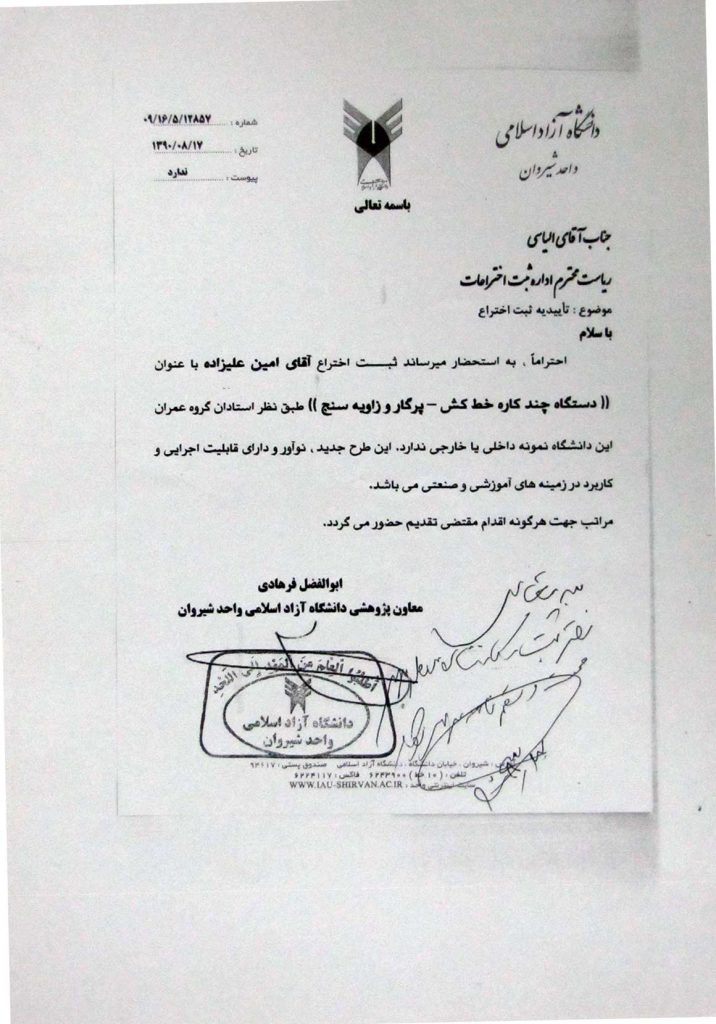 دانشگاه آزاد اسلامی
واحد شیروان
شماره : ۰۹/۱۶/۵/۱۲۸۵۷
تاریخ : ۱۳۹۰/۰۸/۱۷
پیوست : ندارد
باسمه تعالی
جناب آقای الیاسی
ریاست محترم اداره ثبت اختراعات
موضوع : تأییدیه ثبت اختراع
با سلام
احتراماً ، به استحضار میرساند ثبت اختراع آقای امین علیزاده با عنوان
(( دستگاه چند کاره خط کش – پرگار و زاویه سنج )) طبق نظر استادان گروه عمران
این دانشگاه نمونه داخلی یا خارجی ندارد. این طرح جدید ، نوآور و دارای قابلیت اجرایی و
کاربرد در زمینه های آموزشی و صنعتی می باشد.
مراتب جهت هرگونه اقدام مقتضی تقدیم حضور می گردد.
ابوالفضل فرهادی
معاون پژوهشی دانشگاه آزاد اسلامی واحد شیروان
اُطلُبُوا العِلمَ مِنَ المَهدِ اِلَی اللَّحدِ
دانشگاه آزاد اسلامی
واحد شیروان
شیروان ، خیابان دانشگاه ، دانشگاه آزاد اسلامی صندوق پستی : ۹۴۶۱۷
تلفن : ( ۱۰ خط ) ۶۲۴۳۹۰۰ فاکس : ۶۲۲۴۱۱۷
سایت اینترنتی واحد : WWW.IAU-SHIRVAN.AC.IR